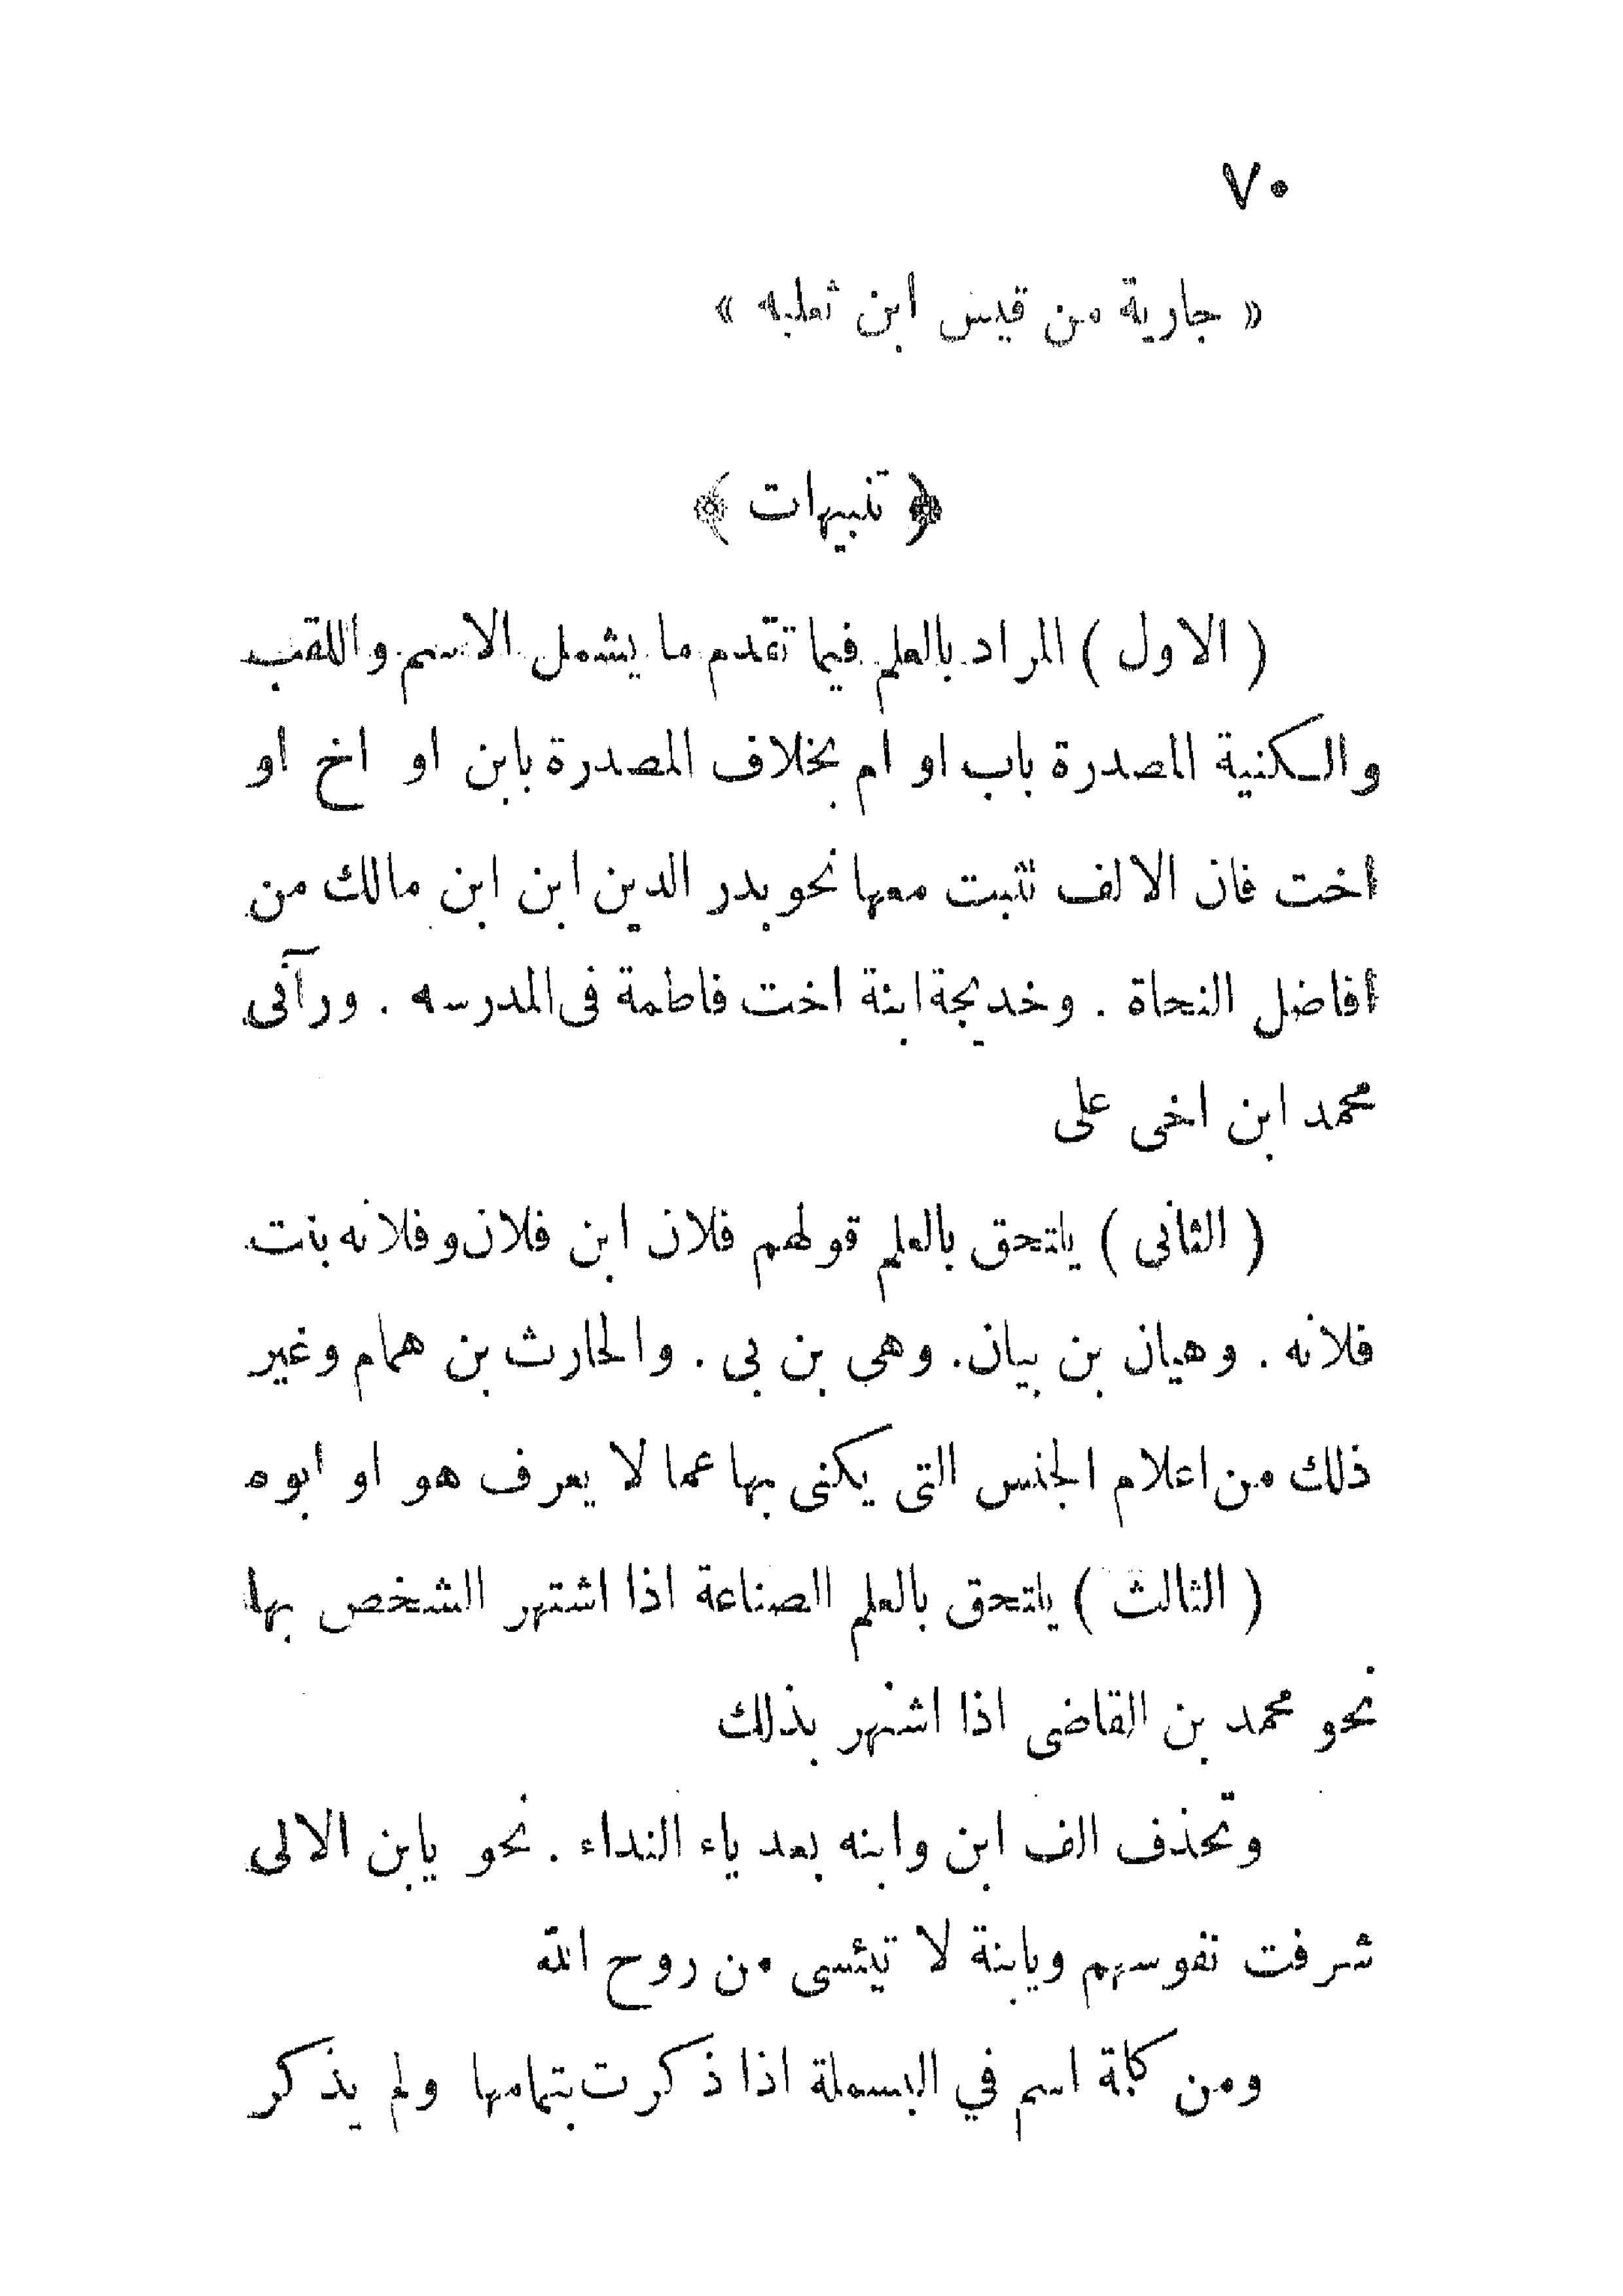 ٧٠
« جارية من قيس ابن ثعلبه »
﴿ تنبيهات ﴾
( الاول ) المراد بالعلم فيما تقدم ما يشمل الاسم واللقب
والكنية المصدرة باب او ام بخلاف المصدرة بابن او اخ او
اخت فان الالف تثبت معها نحو بدر الدين ابن ابن مالك من
افاضل النحاة . وخديجة ابنة اخت فاطمة فى المدرسه . ورآنى
محمد ابن اخى على
( الثانى ) يلتحق بالعلم قولهم فلان ابن فلان وفلانه بنت
فلانه . وهيان بن بيان. وهى بن بى . والحارث بن همام وغير
ذلك من اعلام الجنس التى يكنى بها عما لا يعرف هو او ابوه
( الثالث ) يلتحق بالعلم الصناعة اذا اشتهر الشخص بها
نحو محمد بن القاضى اذا اشتهر بذلك
وتحذف الف ابن وابنه بعد ياء النداء . نحو يابن الالى
شرفت نفوسهم ويابنة لا تيئسى من روح الله
ومن كلمة اسم في البسملة اذا ذكرت بتمامها ولم يذكر